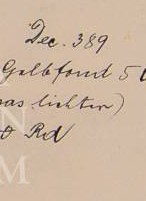 Dec. 389
Gelbfond 5
was lichter)
Rd
N
M